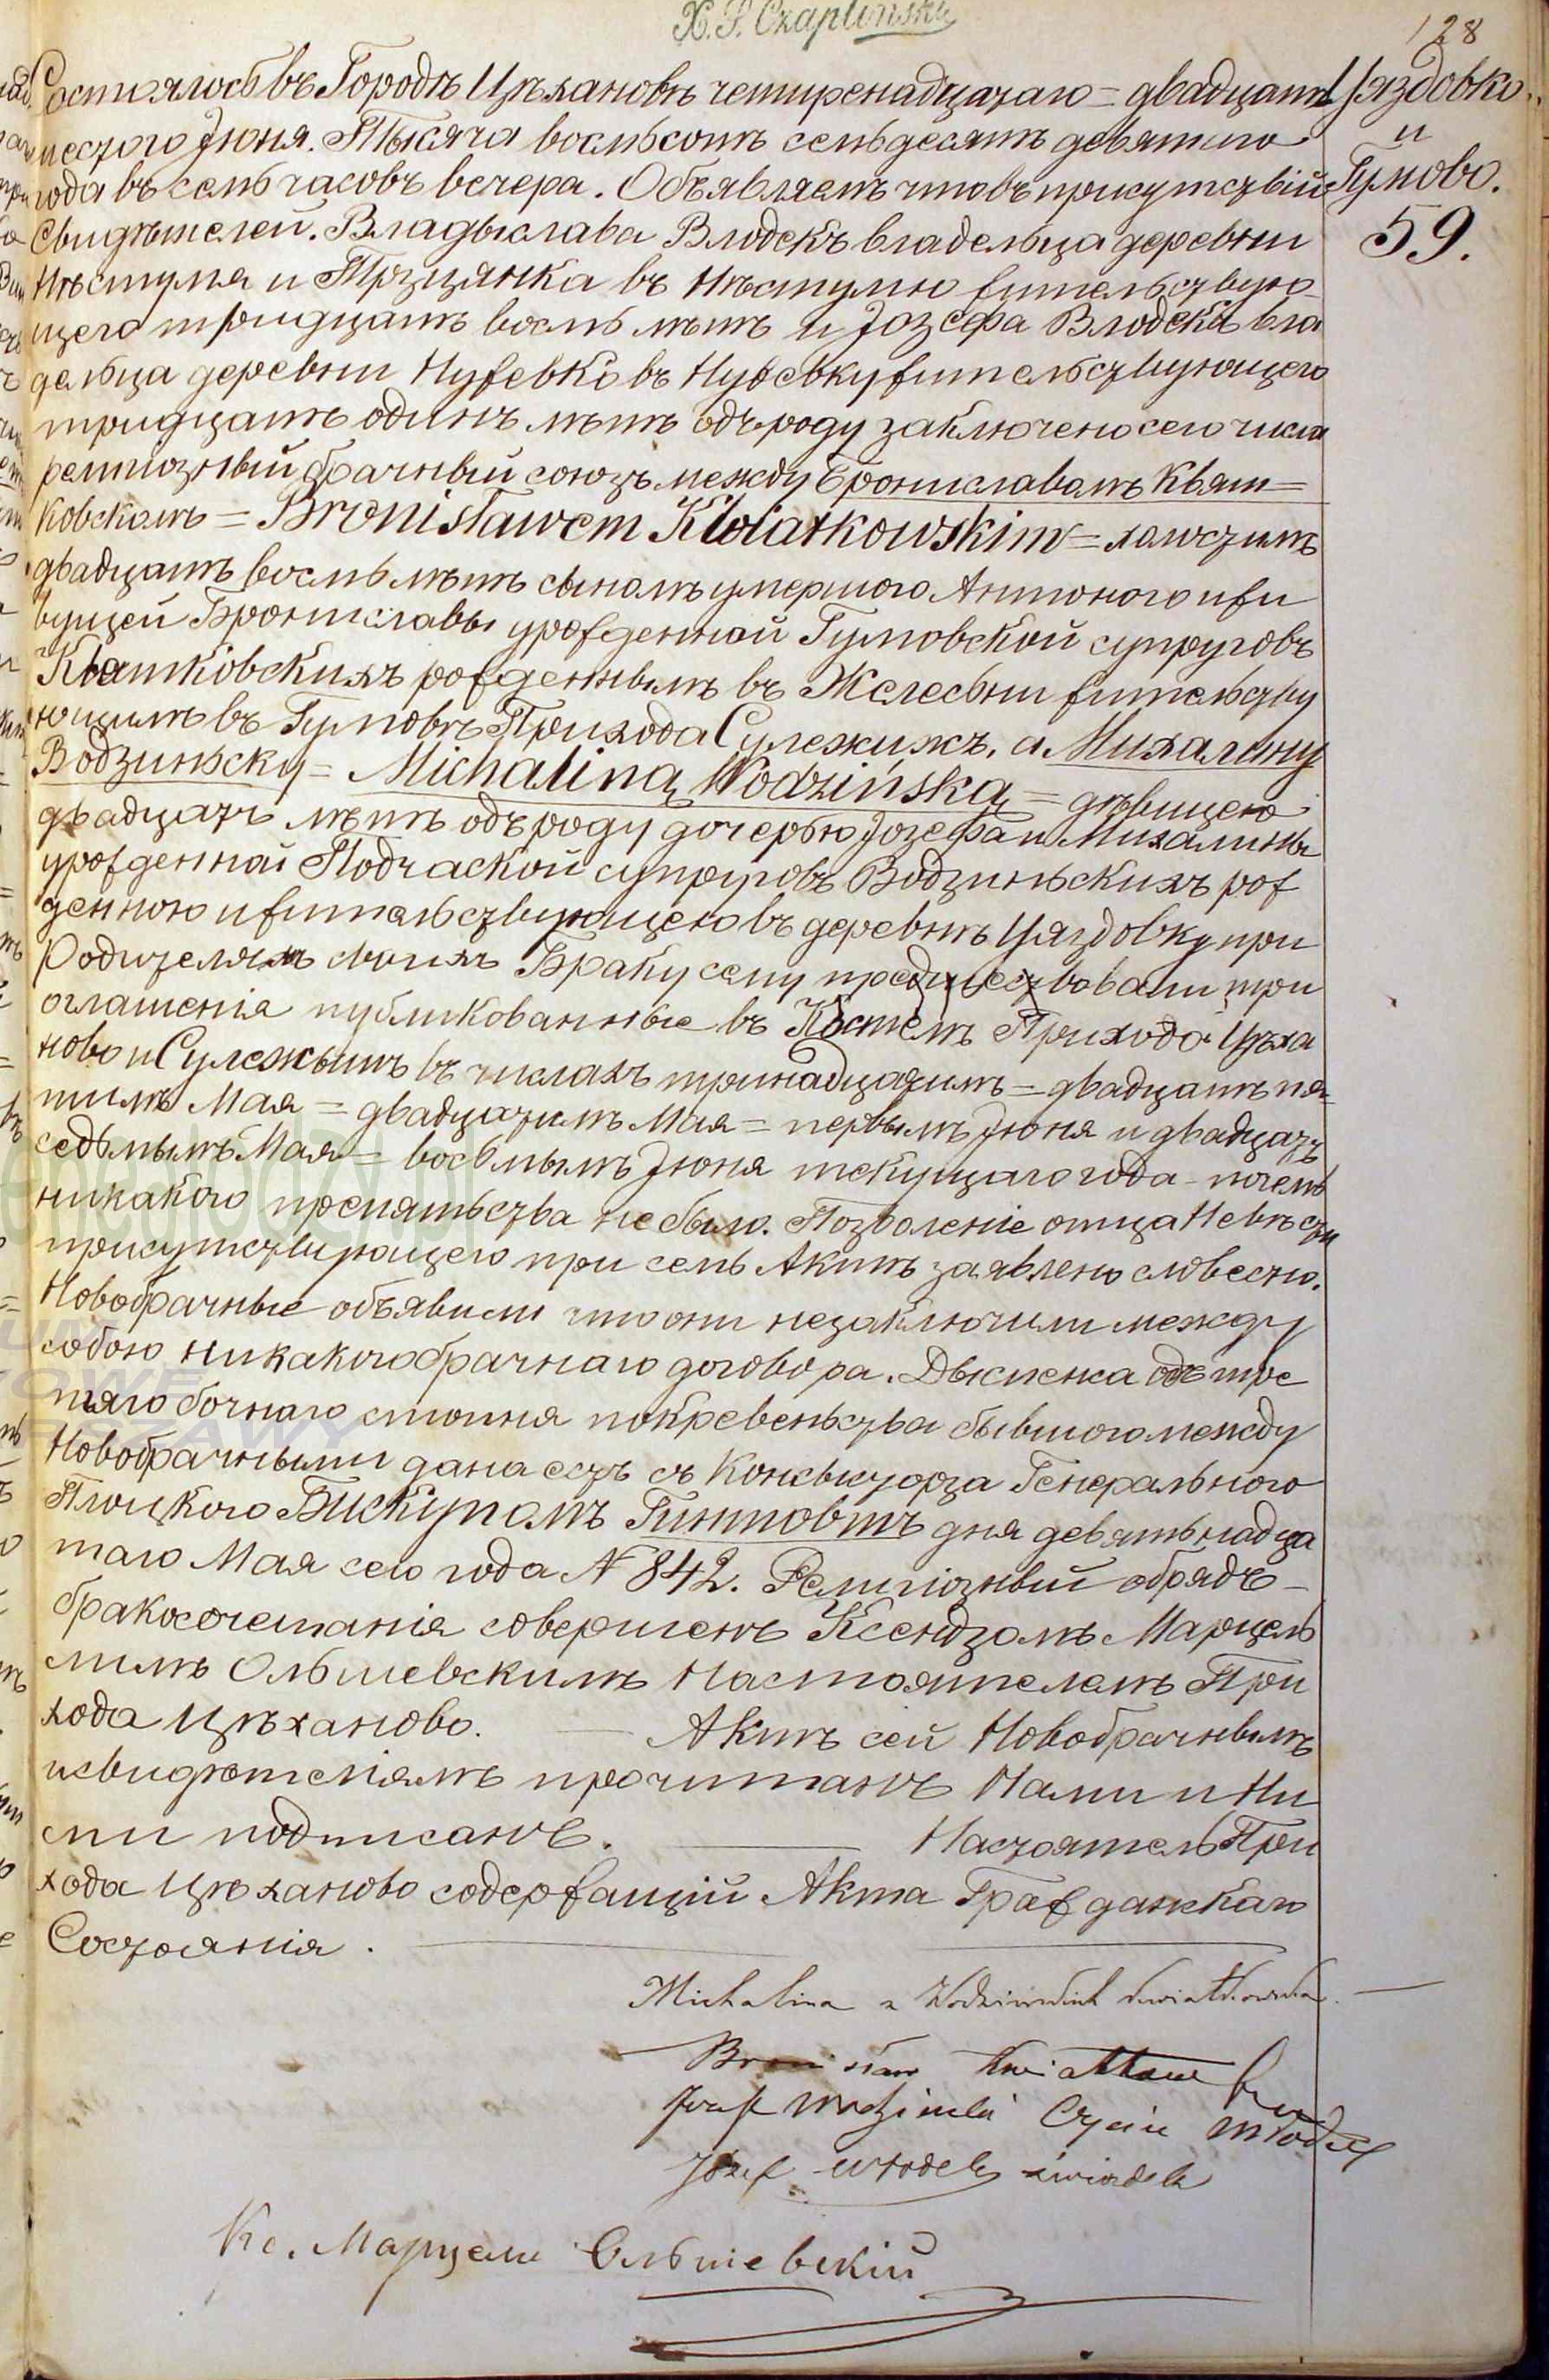 X. P. Czapliński
128
Уяздовко
и
Гумово.
59.
Состоялось въ Городѣ Цѣхановѣ четыренадцатаго = двадцать
шестого Іюня. Тысяча восмьсотъ семьдесятъ девятого
года въ семь часовъ вечера. Объявляемъ что въ присутствій
Свидѣтелей. Владыслава Влодекъ владельца деревни
Нѣстумя и Тржцянка въ Нѣстумю жительствую-
щего тридцать восмь лѣтъ и Іозефа Влодека вла
дельца деревни Нужевко въ Нужевку жительствующего
тридцать одинъ лѣтъ одъ роду заключено сего числа
религіозный брачный союзъ между Брониславомъ Квят=
ковскомъ = Bronisławem Kwiatkowskim = холостымъ
двадцать восмь лѣтъ сыномъ умершого Антоного и жи
вущей Брониславы урожденной Гумовской супруговъ
Квятковскихъ рожденнымъ въ Железни жительству
ющимъ въ Гумовѣ Прихода Сулежижъ, а Михалину
Водзиньску = Michaliną Wodzińską = дѣвицею
двадцать лѣтъ одъ роду дочерью Іозефа и Михалины
урожденной Подчаской супруговъ Водзиньскихъ рож
денною и жительствующею въ деревнѣ Уяздовку при
Родителяхъ своихъ Браку сему предшествовали три
оглашенія публикованные въ Костелѣ Прихода Цѣха
ново и Сулежыжъ въ числахъ тринадцатымъ = двадцать пя-
тымъ Мая = двадцатымъ Мая = первымъ Іюня и двадцать
седьмымъ Мая = восьмымъ Іюня текущаго года - почемъ
никакого препятьства не было. Позволеніе отца Невѣсты
присутствующего при семъ Актѣ заявлено словесно.
Новобрачные объявили что они незаключили между
собою никакого брачнаго договора. Дыспенса одъ тре
тяго бочнаго стопня покревеньства бывшого между
Новобрачными дана естъ съ Консысторза Генерального
Плоцкого Бискупомъ Гинтовтъ дня девятьнадца
таго Мая сего года N 842. Религіозный обрядъ -
бракосочетанія совершенъ Ксендзомъ Марцель
лимъ Ольшевскимъ Настоятелемъ При
хода Цѣханово. — Актъ сей Новобрачнымъ
и свидѣтелямъ прочитанъ Нами и Ни
ми подписанъ. — Настоятель При
хода Цѣханово содержащій Акта Гражданскаго
Состоянія.
Michalina z Wodzińskich Kwiatkowska.
Bronisław Kwiatkowski
Józef Wodziński Ojciec Młodej
Józef Włodek świadek
Кс. Марцели Ольшевскій